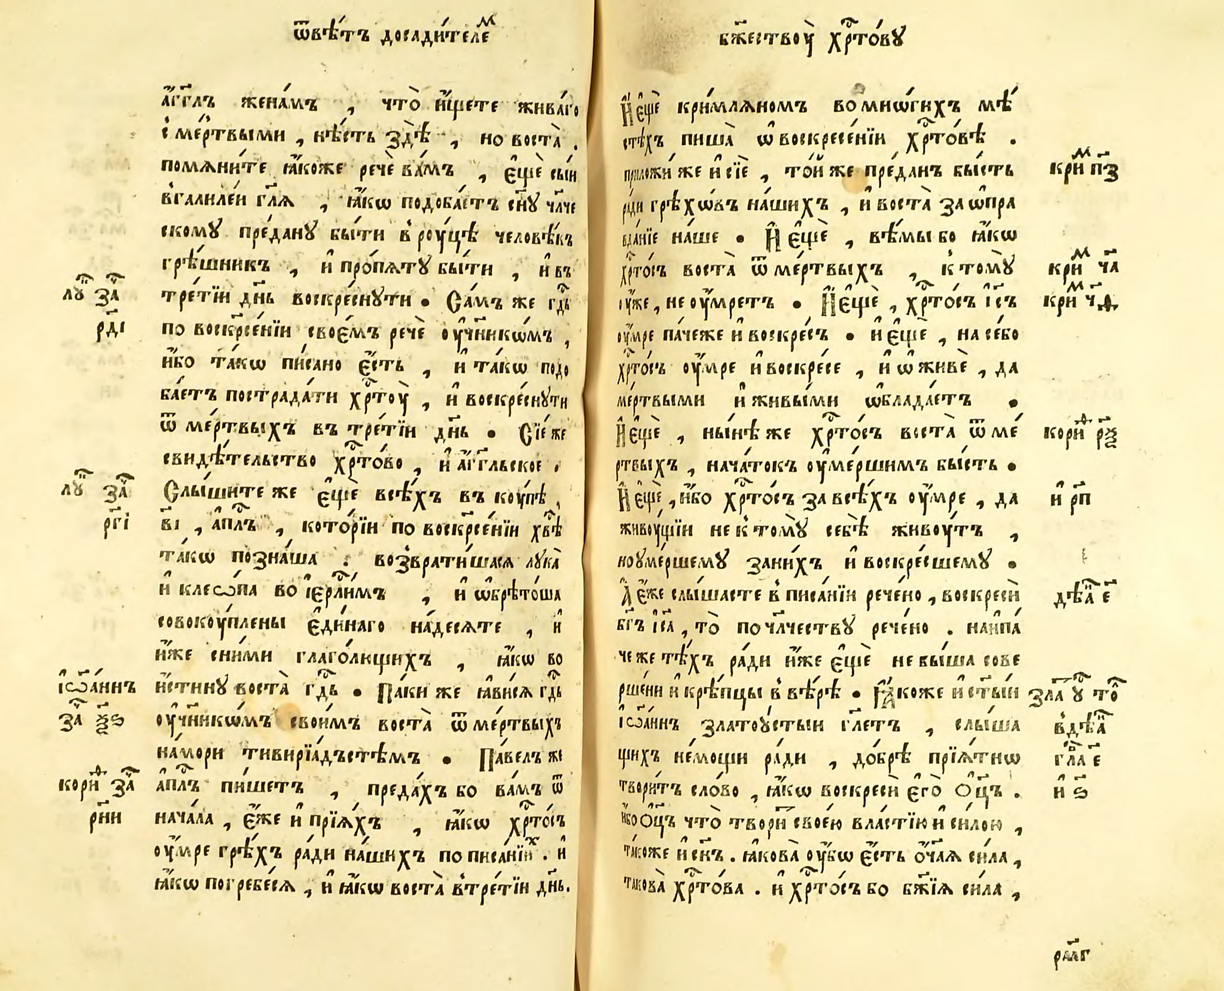 ѿвѣ́тъ досади́телеⷨ
а҆́гг҃лъ жена́мъ , что̀ и҆́щете жива́го
с̾ ме́ртвыми , нѣ́сть здѣ̀ , но воста̀ .
помѧни́те ꙗ҆́коже речѐ ва́мъ , є҆щѐ сы́и
вгалиле́и гл҃ѧ , ꙗ҆́кѡ подоба́етъ сн҃у чл҃че
скому пре́дану бы́ти в̾ роуцѣ̀ человѣ́къ
грѣ́шникъ , и҆ про́пѧту бы́ти , и҆ въ
лꙋⷦ҇ за҇
тре́тїи дн҃ь воскре́снути • Са́мъ же гд҇ь
рд҃і
по воскресе́нїи свое́мъ речѐ оу҆чн҃икѡ́мъ ,
и҆́бо та́кѡ пи́сано є҆́сть , и҆ та́кѡ подо
ба́етъ пострада́ти хрⷭ҇то́у , и҆ воскре́снути
ѿ ме́ртвыхъ въ тре́тїи дн҃ь • Сїе́ же
свидѣ́тельство хрⷭ҇то́во , и҆ а҆́гг҃льское .
лꙋⷦ҇ за҇
Слы́шите же є҆щѐ всѣ́хъ въ коу́пѣ ,
рг҃і
в҃і , а҆пⷭ҇лъ , кото́рїи по воскресе́нїи хв҃ѣ
та́кѡ позна́ша : возврати́шасѧ лука̀
и҆ клео́па во і҆ерⷭ҇ли́мъ , и҆ ѡ҆брѣто́ша
совокоу́плены є҆ди́наго на́десѧте , и҆
и҆́же сни́ми глаго́лющихъ , ꙗ҆́кѡ во
і҆ѡа́ннъ
и҆́стину воста̀ гд҇ь • Па́ки же ꙗ҆ви́сѧ гд҇ь
за҇ ѯ҃ѕ
оу҆чн҃икѡ́мъ свои́мъ воста̀ ѿ ме́ртвыхъ
на́мори тивирїа́дъстѣмъ • Па́велъ же
кориⷴ҇ за҇
а҆пⷭ҇лъ пи́шетъ , преда́хъ бо ва́мъ ѿ
рн҃и
нача́ла , є҆́же и҆ прїѧ́хъ , ꙗ҆́кѡ хрⷭ҇то́съ
оу҆́мре грѣ́хъ ра́ди на́шихъ по писа́нїиⷯ . и҆
ꙗ҆́кѡ погребе́сѧ , и҆ ꙗ҆́кѡ воста̀ в̾тре́тїи дн҃ь.
бж҃ествоу̀ хрⷭ҇то́ву
И҆ є҆щѐ кри́млѧномъ во мно́гихъ мѣ́
стѣхъ пиша̀ ѡ҆ воскресе́нїи хрⷭ҇то́вѣ .
приложи́ же и҆ сїѐ , то́й же пре́данъ бы́сть
криⷨ п҃з
ра́ди грѣ́хѡвъ на́шихъ , и҆ воста̀ за ѡ҆пра
вда́нїе на́ше • И҆ є҆щѐ , вѣ́мы бо ꙗ҆́кѡ
хрⷭ҇то́съ воста̀ ѿ ме́ртвыхъ , к̾ тому̀
криⷨ ч҃а
оу҆же , не оу҆́мретъ • И҆ є҆щѐ , хрⷭ҇то́съ і҆с҃ъ
криⷨ
оу҆́мре па́чеже и҆ воскре́съ • и҆ є҆щѐ , на се́бо
хрⷭ҇то́съ оу҆́мре и҆ воскре́се , и҆ ѡ҆живѐ , да
ме́ртвыми и҆ живы́ми ѡ҆блада́етъ •
И҆ є҆щѐ , ны́нѣ же хрⷭ҇то́съ воста̀ ѿ ме́
кориⷴ҇ рѯ҃
ртвыхъ , нача́токъ оу҆ме́ршимъ бы́сть •
И҆ є҆щѐ , и҆́бо хрⷭ҇то́съ за всѣ́хъ оу҆́мре , да
и҆ рп҃
живоу́щїи не к̾ тому̀ себѣ̀ живоу́тъ ,
но оу҆ме́ршему за ни́хъ и҆ воскре́сшему •
А҆ є҆́же слы́шасте в̾ писа́нїи рече́но , воскресѝ
дѣѧ҇ е҃
бг҃ъ і҆с҃а , то̀ по чл҃честву рече́но . наипа
че же тѣ́хъ ра́ди и҆́же є҆щѐ не бы́ша сове
рше́ни и҆ крѣ́пцы в̾ вѣ́рѣ • Ꙗ҆́коже и҆ ст҃ы́и
зла ꙋ҆ то҇
і҆ѡа́ннъ златоу́стыи гл҃етъ , слы́ша
вдѣѧ҇
щихъ не́мощи ра́ди , до́брѣ прїѧ́тнѡ
гла е҃
твори́тъ сло́во , ꙗ҆́кѡ воскресѝ є҆го̀ Ѻ҆ц҃ъ .
и҆ ѕ҃
и҆́бо Ѻ҆ц҃ъ что̀ твори́ свое́ю вла́стїю и҆ си́лою ,
та́коже и҆ сн҃ъ . ꙗ҆кова̀ оу҆́бѡ є҆́сть ѻ҆́ч҃аѧ си́ла ,
такова̀ хрⷭ҇то́ва . и҆ хрⷭ҇то́съ бо бж҃їѧ си́ла ,